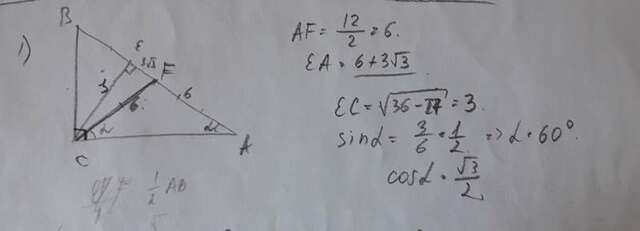 1)
B
E
3√3
F
3
6
6
α
α
C
A
1/2 AB
AF = 12/2 = 6.
EA = 6 + 3√3
EC = √36 - 27 = 3.
sin α = 3/6 = 1/2 ⇒ α = 60°.
cos α = √3/2